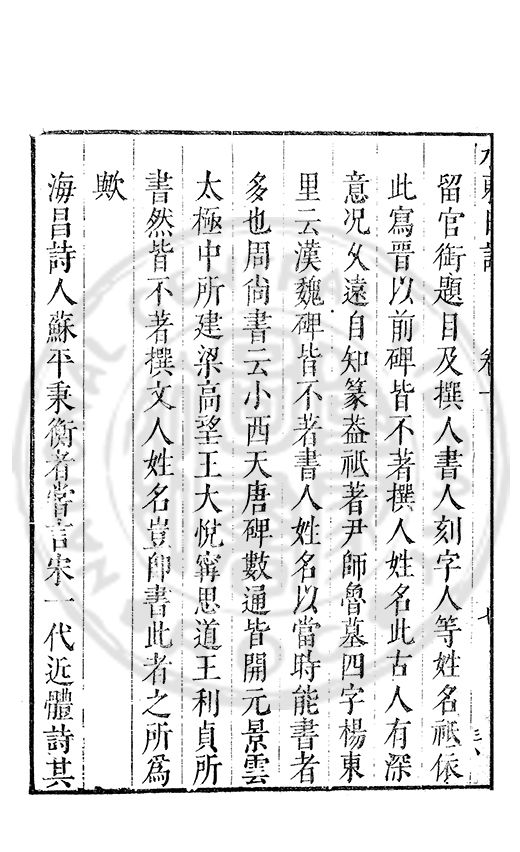 水東日記 卷十 七
留官銜題目及撰人書人刻字人等姓名祗依
此寫晉以前碑皆不著撰人姓名此古人有深
意况乆遠自知篆葢祗著尹師魯墓四字楊東
里云漢魏碑皆不著書人姓名以當時能書者
多也周尚書云小西天唐碑數通皆開元景雲
太極中所建梁高望王大悅甯思道王利貞所
書然皆不著撰文人姓名豈卽書此者之所爲
歟
海昌詩人蘇平秉衡者嘗言宋一代近體詩其